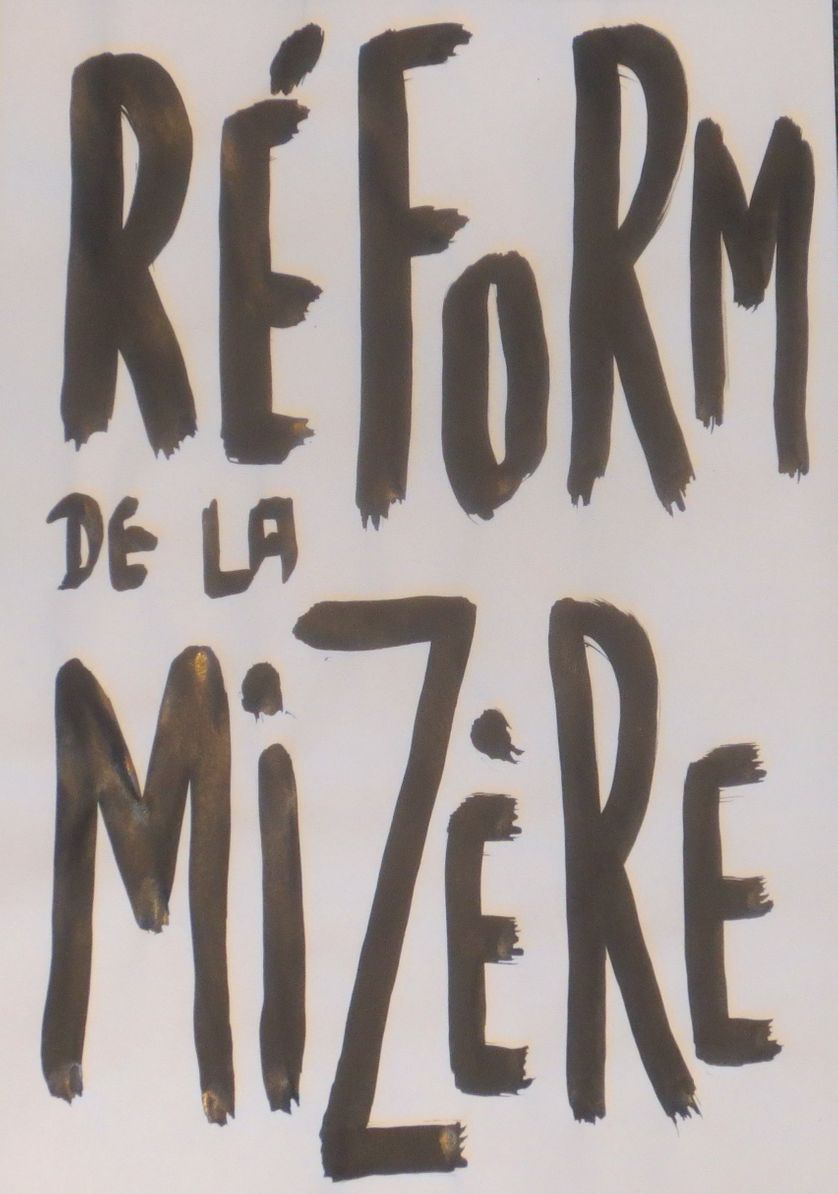 RÉFORM
DE LA
MiZÈRE